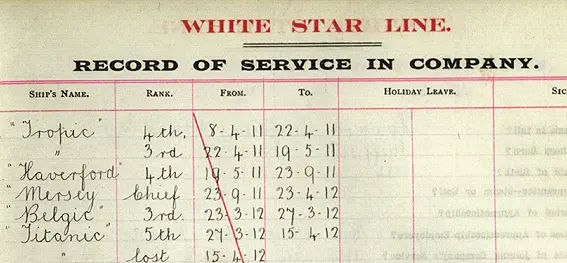 WHITE STAR LINE.
RECORD OF SERVICE IN COMPANY.
SHIP'S NAME. RANK. FROM. TO. HOLIDAY LEAVE. SIC
"Tropic" 4th. 8-4-11 22-4-11
" 3rd 22-4-11 19-5-11
"Haverford" 4th 19-5-11 23-9-11
"Mersey Chief 23-9-11 23-4-12
"Belgic" 3rd. 23-3-12 27-3-12
"Titanic" 5th 27-3-12 15-4-12
" lost 15-4-12